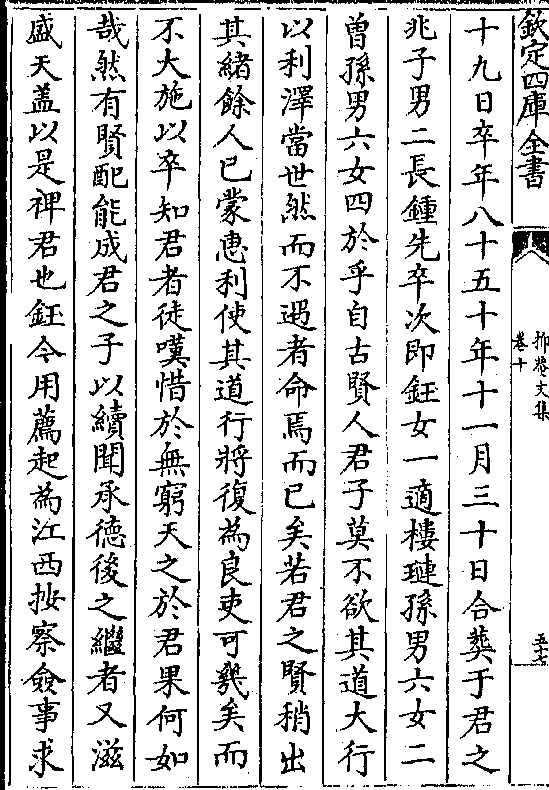 欽定四庫全書
抑菴文集
卷十
五十七
十九日卒年八十五十年十一月三十日合葬于君之
兆子男二長鍾先卒次即鈺女一適樓璉孫男六女二
曾孫男六女四於乎自古賢人君子莫不欲其道大行
以利澤當世然而不遇者命焉而已矣若君之賢稍出
其緒餘人已蒙惠利使其道行將復為良吏可幾矣而
不大施以卒知君者徒嘆惜於無窮天之於君果何如
哉然有賢配能成君之子以續聞承德後之繼者又滋
盛天盖以是裨君也鈺今用薦起為江西按察僉事求